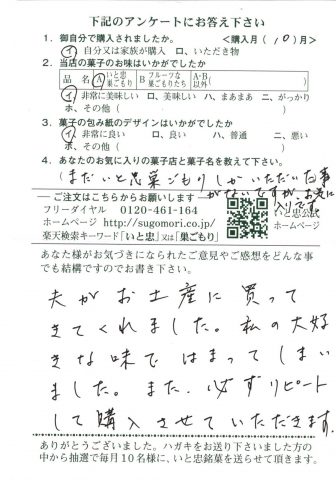 下記のアンケートにお答え下さい
1. 御自分で購入されましたか。 <購入月(10)月>
イ、自分又は家族が購入 ロ、いただき物
2. 当店の菓子のお味はいかがでしたか
品名 A いと忠巣ごもり B フルーツな巣ごもりたち A・B以外( )
イ、非常に美味しい ロ、美味しい ハ、まあまあ ニ、がっかり
ホ、その他( )
3. 菓子の包み紙のデザインはいかがでしたか
イ、非常に良い ロ、良い ハ、普通 ニ、悪い
ホ、その他( )
4. あなたのお気に入りの菓子店と菓子名を教えて下さい。
(まだいと忠巣ごもりしかいただいた事
がないですが お気に
入りです。
ご注文はこちらからお願いします
フリーダイヤル 0120-461-164
ホームページ http://sugomori.co.jp/
楽天検索キーワード「いと忠」又は「巣ごもり」
いと忠公式
ホームページ
あなた様がお気づきになられたご意見やご感想をどんな事
でも結構ですのでお書き下さい。
夫がお土産に買って
きてくれました。私の大好
きな味で はまってしまい
ました。また、必ずリピート
して購入させていただきます。
ありがとうございました。ハガキをお送り下さいました方の
中から抽選で毎月10名様に、いと忠銘菓を送らせて頂きます。